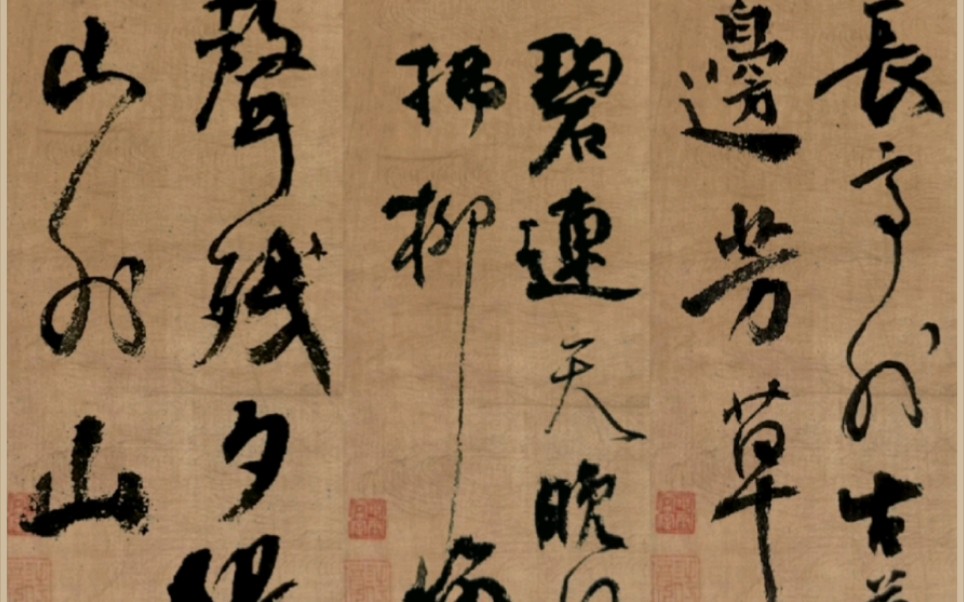 長亭外古
邊芳草
碧連天晚
拂柳
聲殘夕陽
山外山